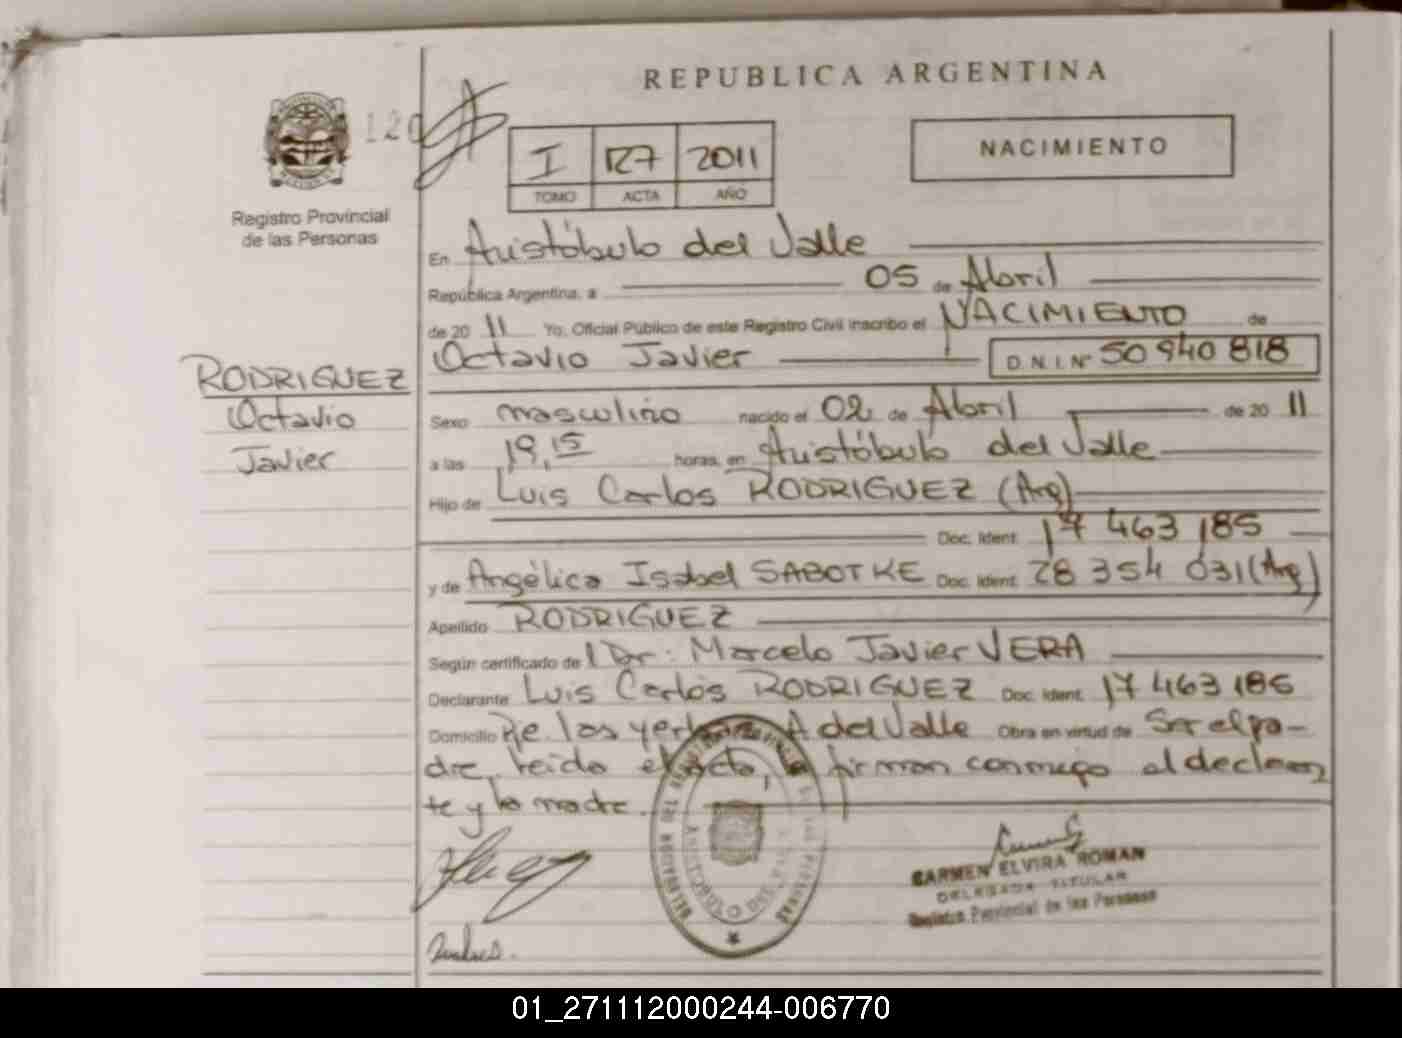 REPUBLICA ARGENTINA
120
I 127 2011
TOMO ACTA AÑO
NACIMIENTO
Registro Provincial
de las Personas
En Aristóbulo del Valle
República Argentina, a 05 de Abril
de 20 11 Yo, Oficial Público de este Registro Civil inscribo el NACIMIENTO de
Octavio Javier D.N.I. Nº 50 940 818
RODRIGUEZ
Octavio
Javier
Sexo masculino nacido el 02 de Abril de 20 11
a las 19,15 horas, en Aristóbulo del Valle
Hijo de Luis Carlos RODRIGUEZ (Arg)
Doc. Ident. 17 463 185
y de Angélica Isabel SABOTKE Doc. Ident. 28 354 031 (Arg)
Apellido RODRIGUEZ
Según certificado de l Dr: Marcelo Javier VERA
Declarante Luis Carlos RODRIGUEZ Doc. Ident. 17 463 185
Domicilio De las A del Valle Obra en virtud de Ser el pa-
dre, leida el acta, la firman conmigo el declaran
te y la madre.
CARMEN ELVIRA ROMAN
DELEGADA TITULAR
Registro Provincial de las Personas
01_271112000244-006770